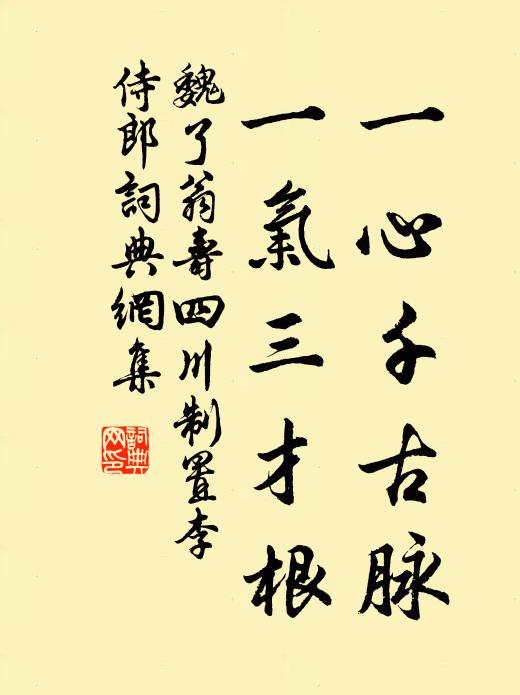 一心千古脉
一氣三才根
魏了翁壽四川制置李
侍郎詞典網集
詞典
网印